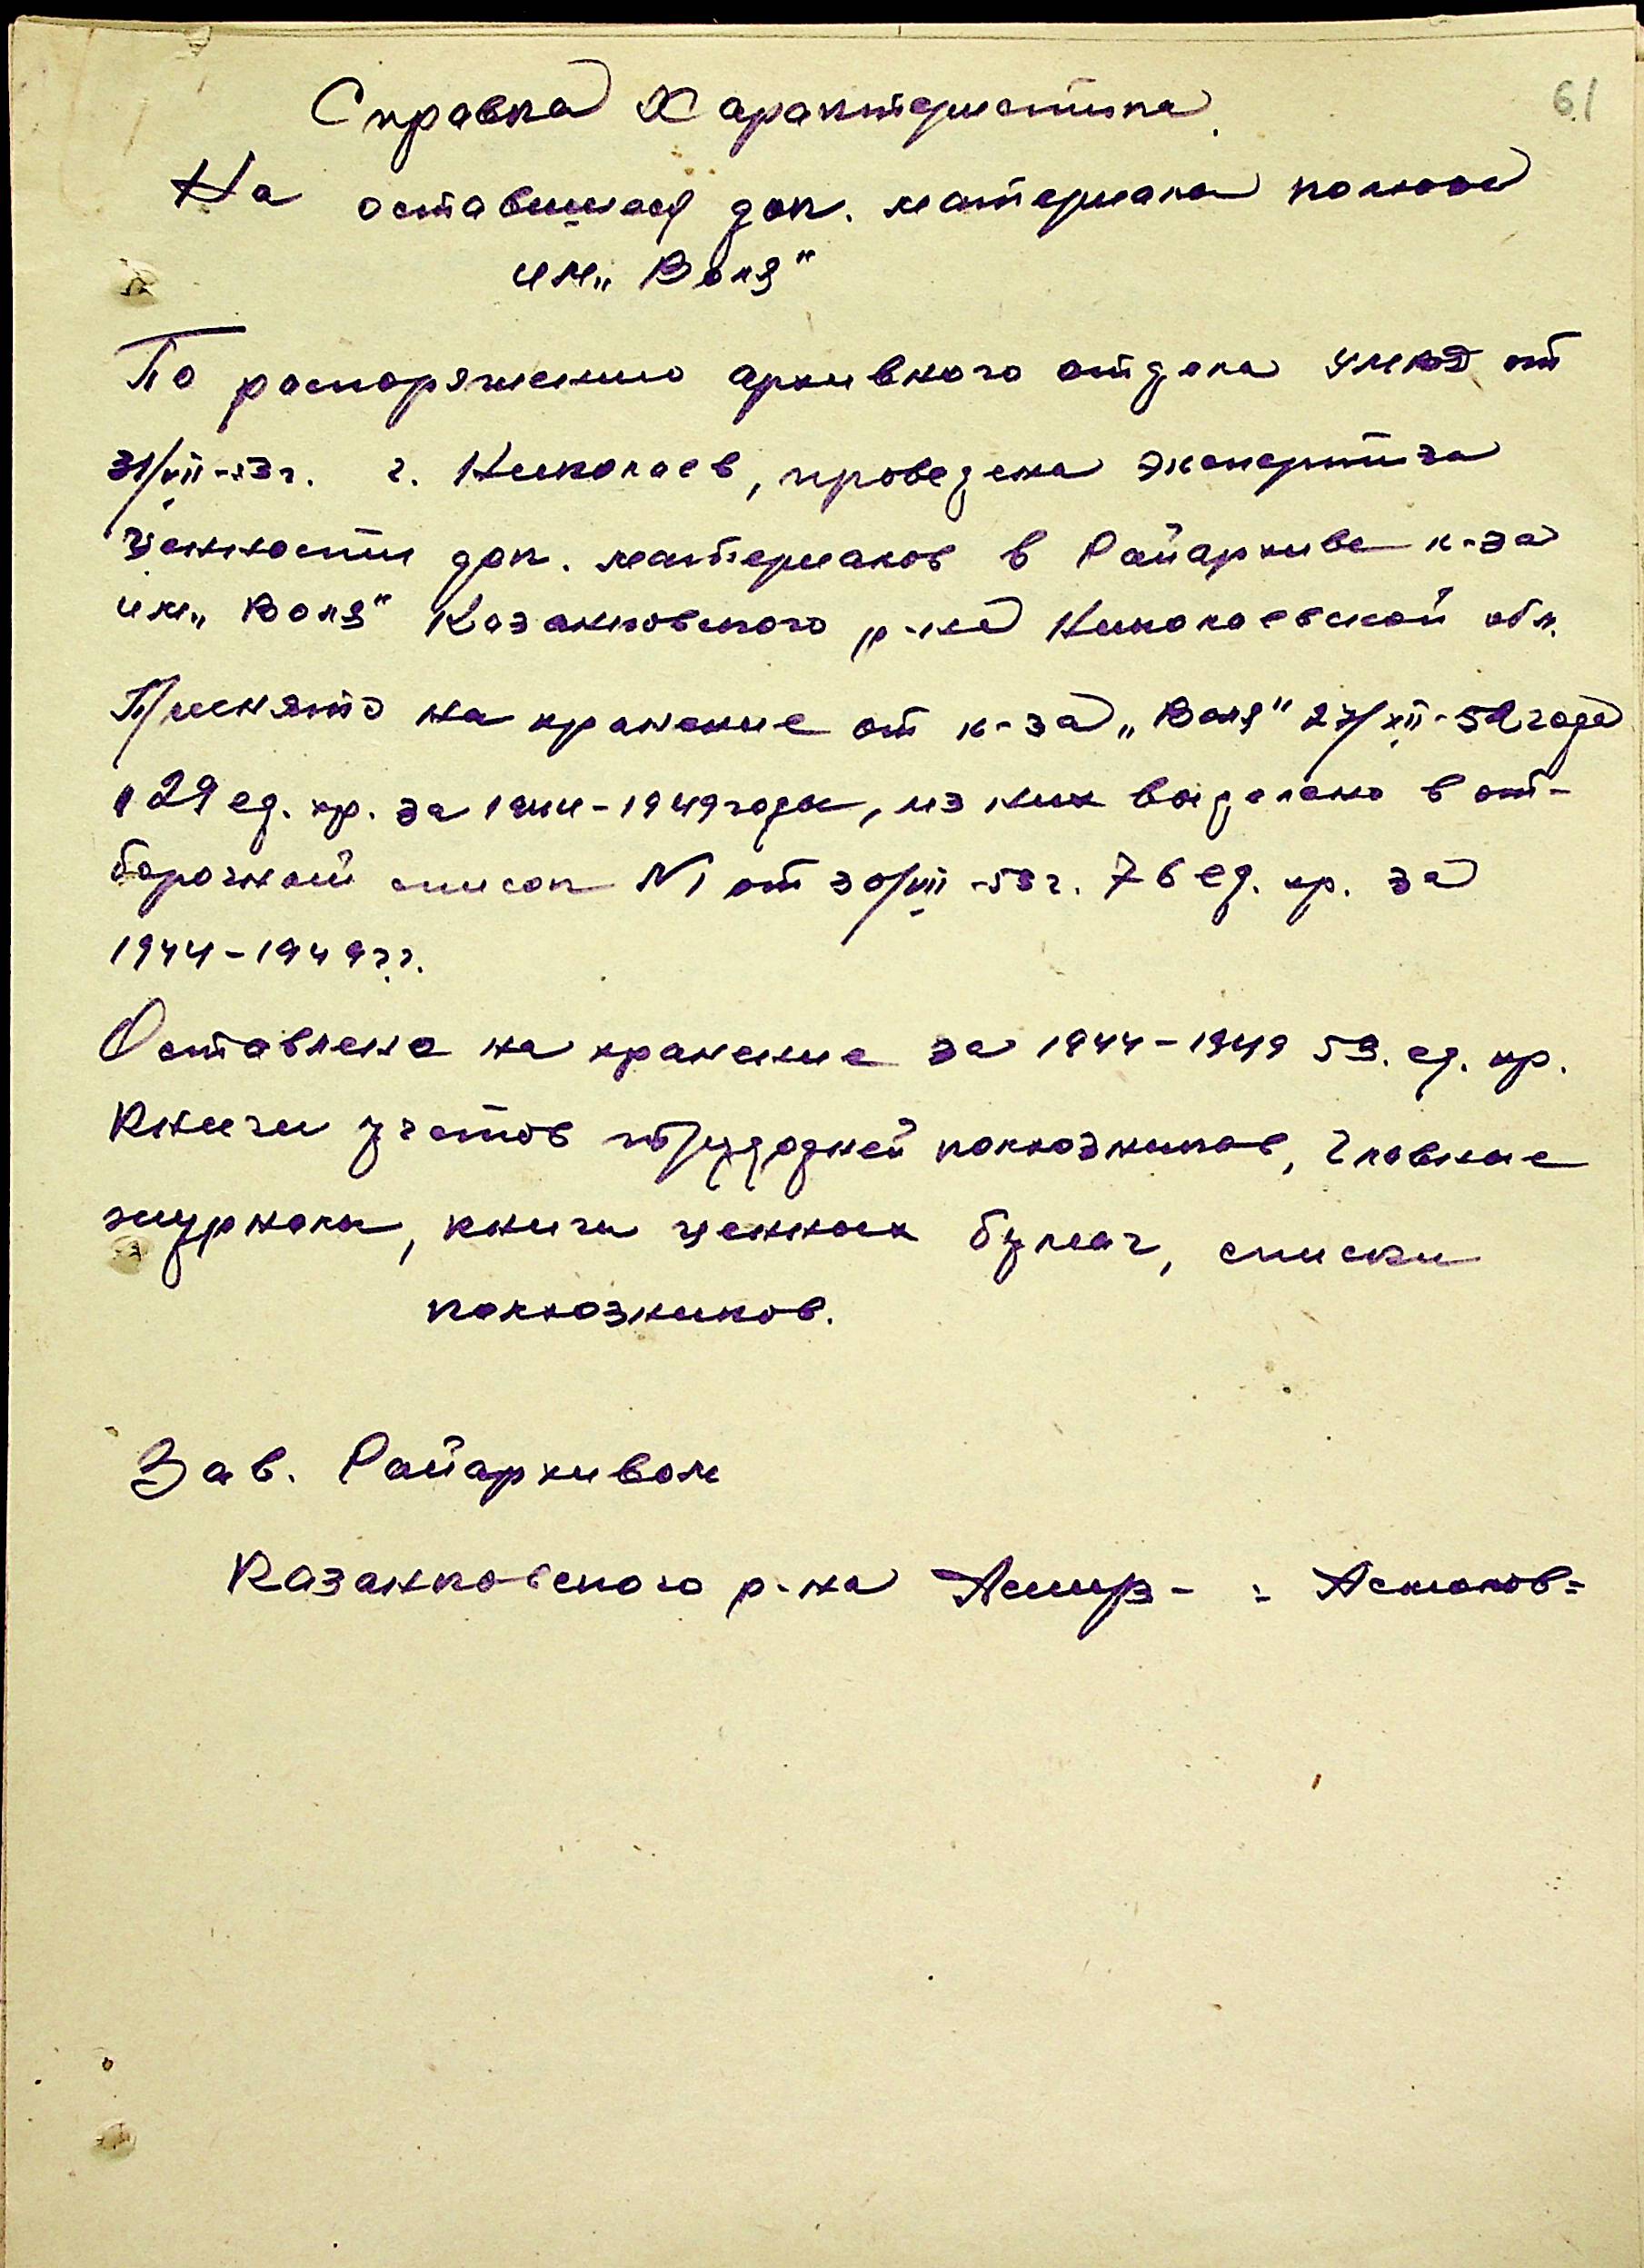 61
Справка Характеристика.
На оставшиеся док. материала колхоза
им „Воля"
По распоряжению архивного отдела УМВД от
31/VII-53 г. г. Николаев, проведена экспертиза
ценности док. материалов в Райархиве к-за
им „Воля" Казанковского р-на Николаевской обл.
Принято на хранение от к-за „Воля" 27/XII-52 года
129 ед. хр. за 1944-1949 годы, из них выделено в от-
борочный список N1 от 30/VII-53 г. 76 ед. хр. за
1944-1949 г.г.
Оставлено на хранение за 1944-1949 53. ед. хр.
Книги учетов трудодней колхозников, Главные
журналы, книги ценных бумаг, списки
колхозников.
Зав. Райархивом
Казанковского р-на